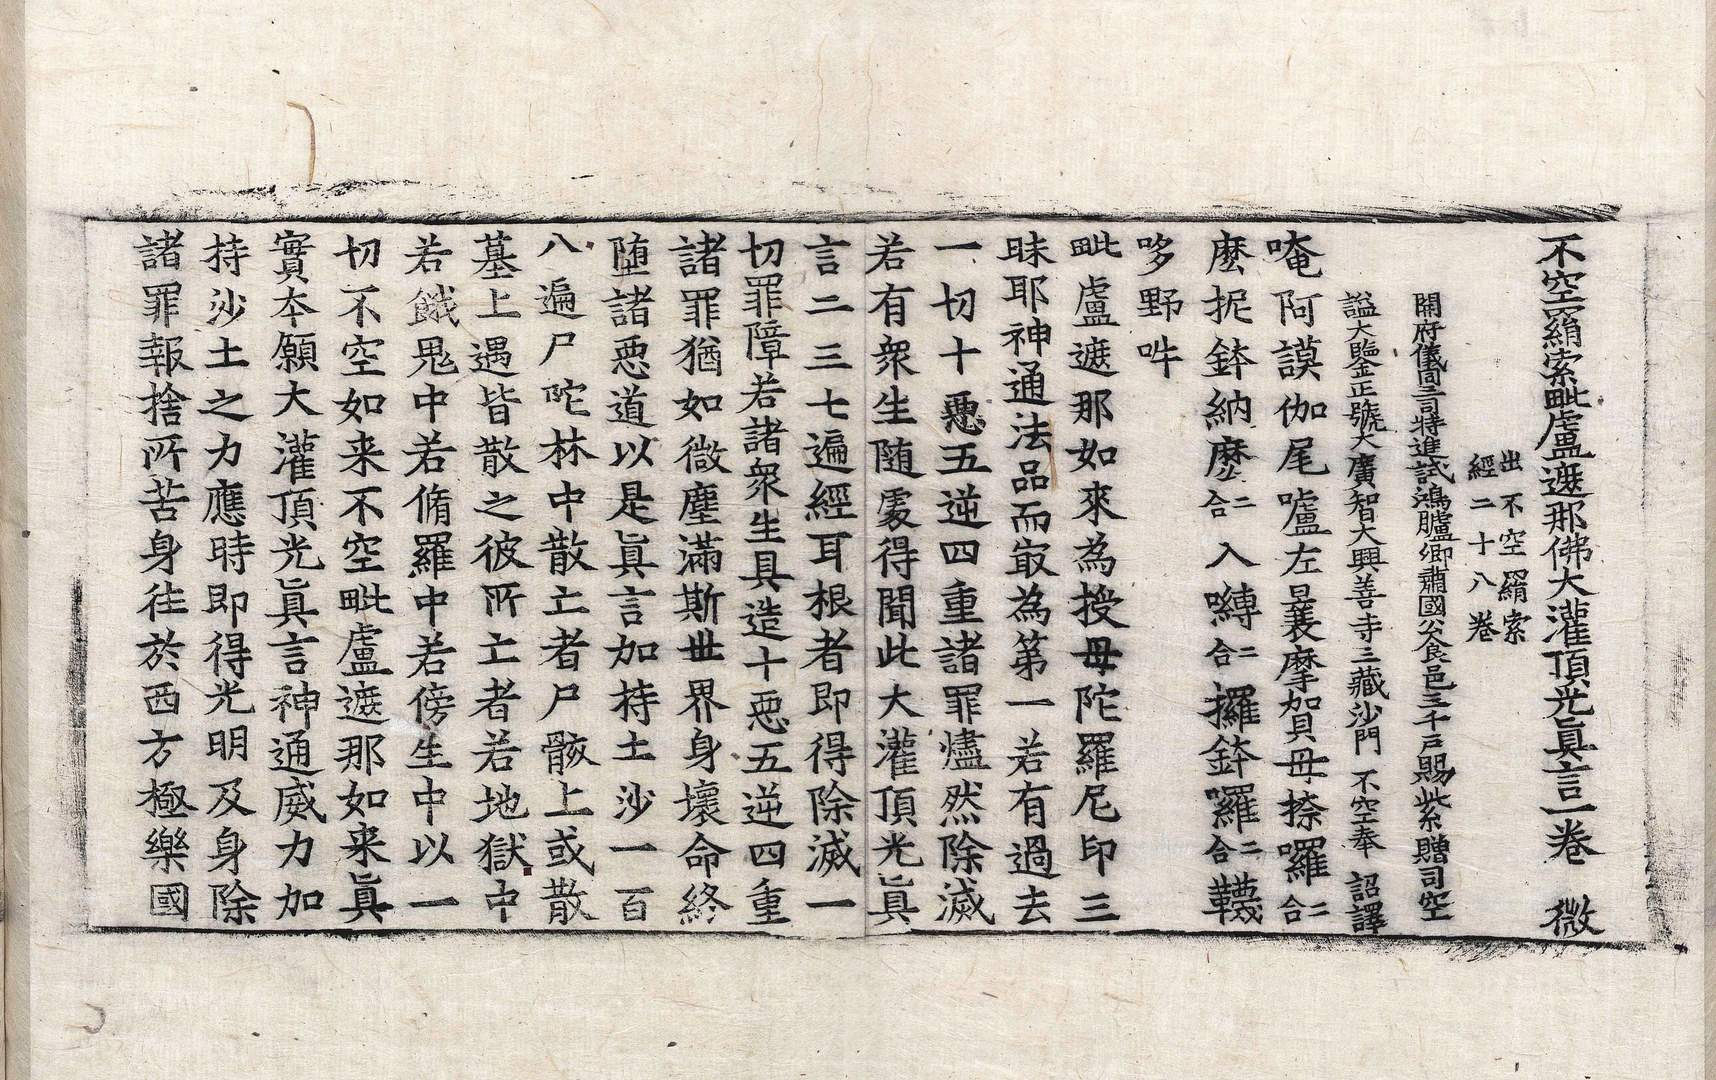 不空羂索毗盧遮那佛大灌頂光眞言一卷 微
出不空羂索
經二十八卷
開府儀同三司特進試鴻臚卿肅國公食邑三千戶賜紫贈司空
謚大鑒正號大廣智大興善寺三藏沙門 不空奉 詔譯
唵阿謨伽尾嚧左曩摩賀母捺囉二合
麽抳鉢納麽二合入嚩二合攞鉢囉二合韈
哆野吽
毗盧遮那如來為授母陀羅尼印三
昧耶神通法品而㝡為第一若有過去
一切十惡五逆四重諸罪燼然除滅
若有衆生随處得聞此大灌頂光眞
言二三七遍經耳根者即得除滅一
切罪障若諸衆生具造十惡五逆四重
諸罪猶如微塵滿斯世界身壞命終
堕諸惡道以是眞言加持土沙一百
八遍尸陀林中散亡者尸骸上或散
墓上遇皆散之彼所亡者若地獄中
若餓鬼中若脩羅中若傍生中以一
切不空如来不空毗盧遮那如来眞
實本願大灌頂光眞言神通威力加
持沙土之力應時即得光明及身除
諸罪報捨所苦身徃於西方極樂國